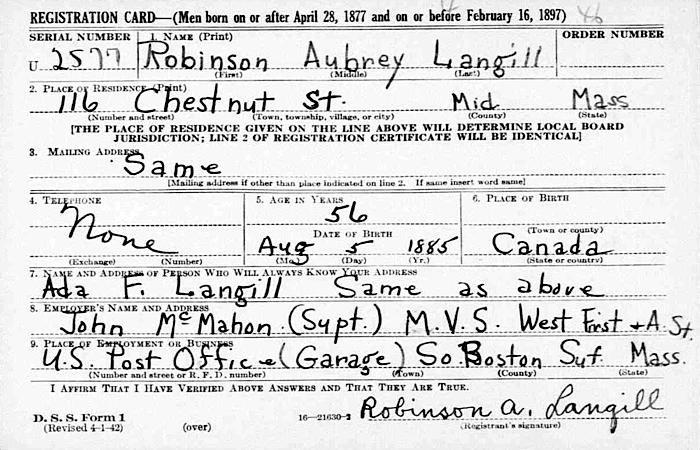 REGISTRATION CARD—(Men born on or after April 28, 1877 and on or before February 16, 1897)
SERIAL NUMBER 1. NAME (Print) ORDER NUMBER
U 2577 Robinson Aubrey Langill
(First) (Middle) (Last)
2. PLACE OF RESIDENCE (Print)
116 Chestnut St. Mid Mass
(Number and street) (Town, township, village, or city) (County) (State)
[THE PLACE OF RESIDENCE GIVEN ON THE LINE ABOVE WILL DETERMINE LOCAL BOARD
JURISDICTION; LINE 2 OF REGISTRATION CERTIFICATE WILL BE IDENTICAL]
3. MAILING ADDRESS
Same
[Mailing address if other than place indicated on line 2. If same insert word same]
4. TELEPHONE 5. AGE IN YEARS 6. PLACE OF BIRTH
None 56
DATE OF BIRTH (Town or county)
Aug 5 1885 Canada
(Exchange) (Number) (Mo.) (Day) (Yr.) (State or country)
7. NAME AND ADDRESS OF PERSON WHO WILL ALWAYS KNOW YOUR ADDRESS
Ada F. Langill Same as above
8. EMPLOYER'S NAME AND ADDRESS
John McMahon (Supt.) M.V.S. West First + A. St.
9. PLACE OF EMPLOYMENT OR BUSINESS
U.S. Post Office (Garage) So. Boston Suf. Mass.
(Number and street or R. F. D. number) (Town) (County) (State)
I AFFIRM THAT I HAVE VERIFIED ABOVE ANSWERS AND THAT THEY ARE TRUE.
D. S. S. Form 1 16—21630-2 Robinson A. Langill
(Revised 4-1-42) (over) (Registrant's signature)